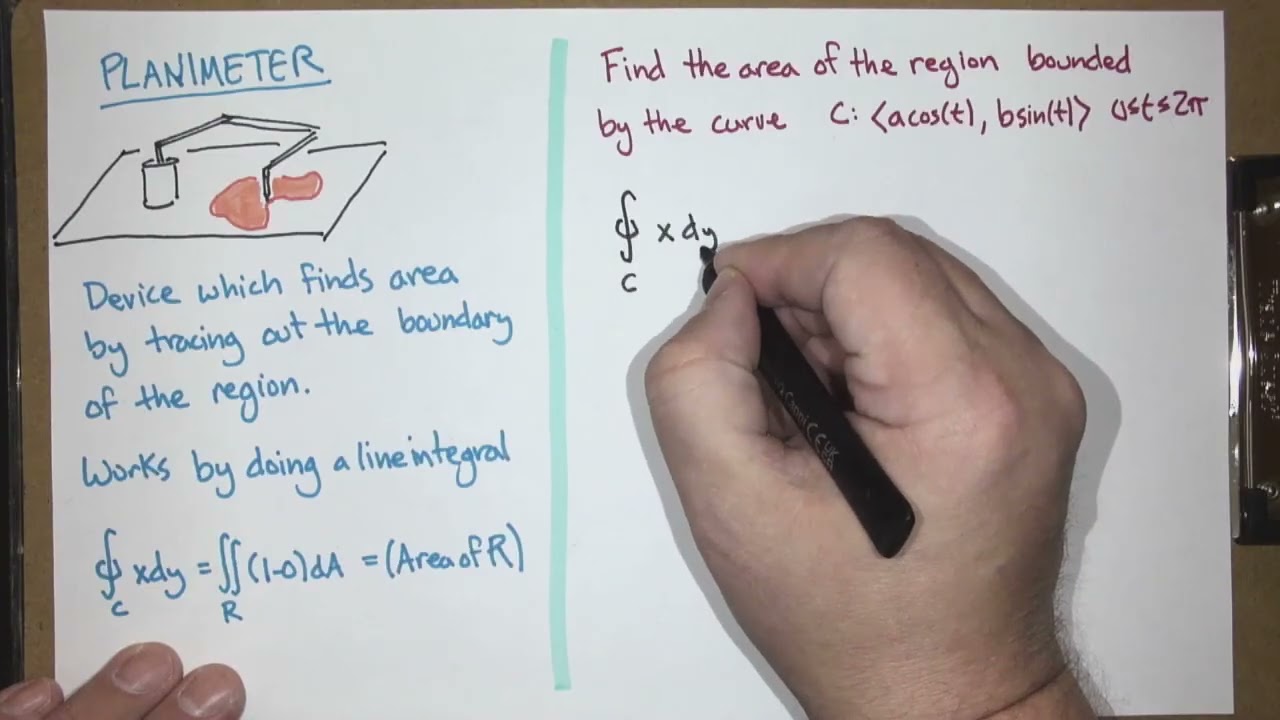 PLANIMETER
Device which finds area
by tracing out the boundary
of the region.
Works by doing a line integral
∮ x dy = ∬ (1-0) dA = (Area of R)
C R
Find the area of the region bounded
by the curve C: ⟨a cos(t), b sin(t)⟩ 0≤t≤2π
∮ x dy
C